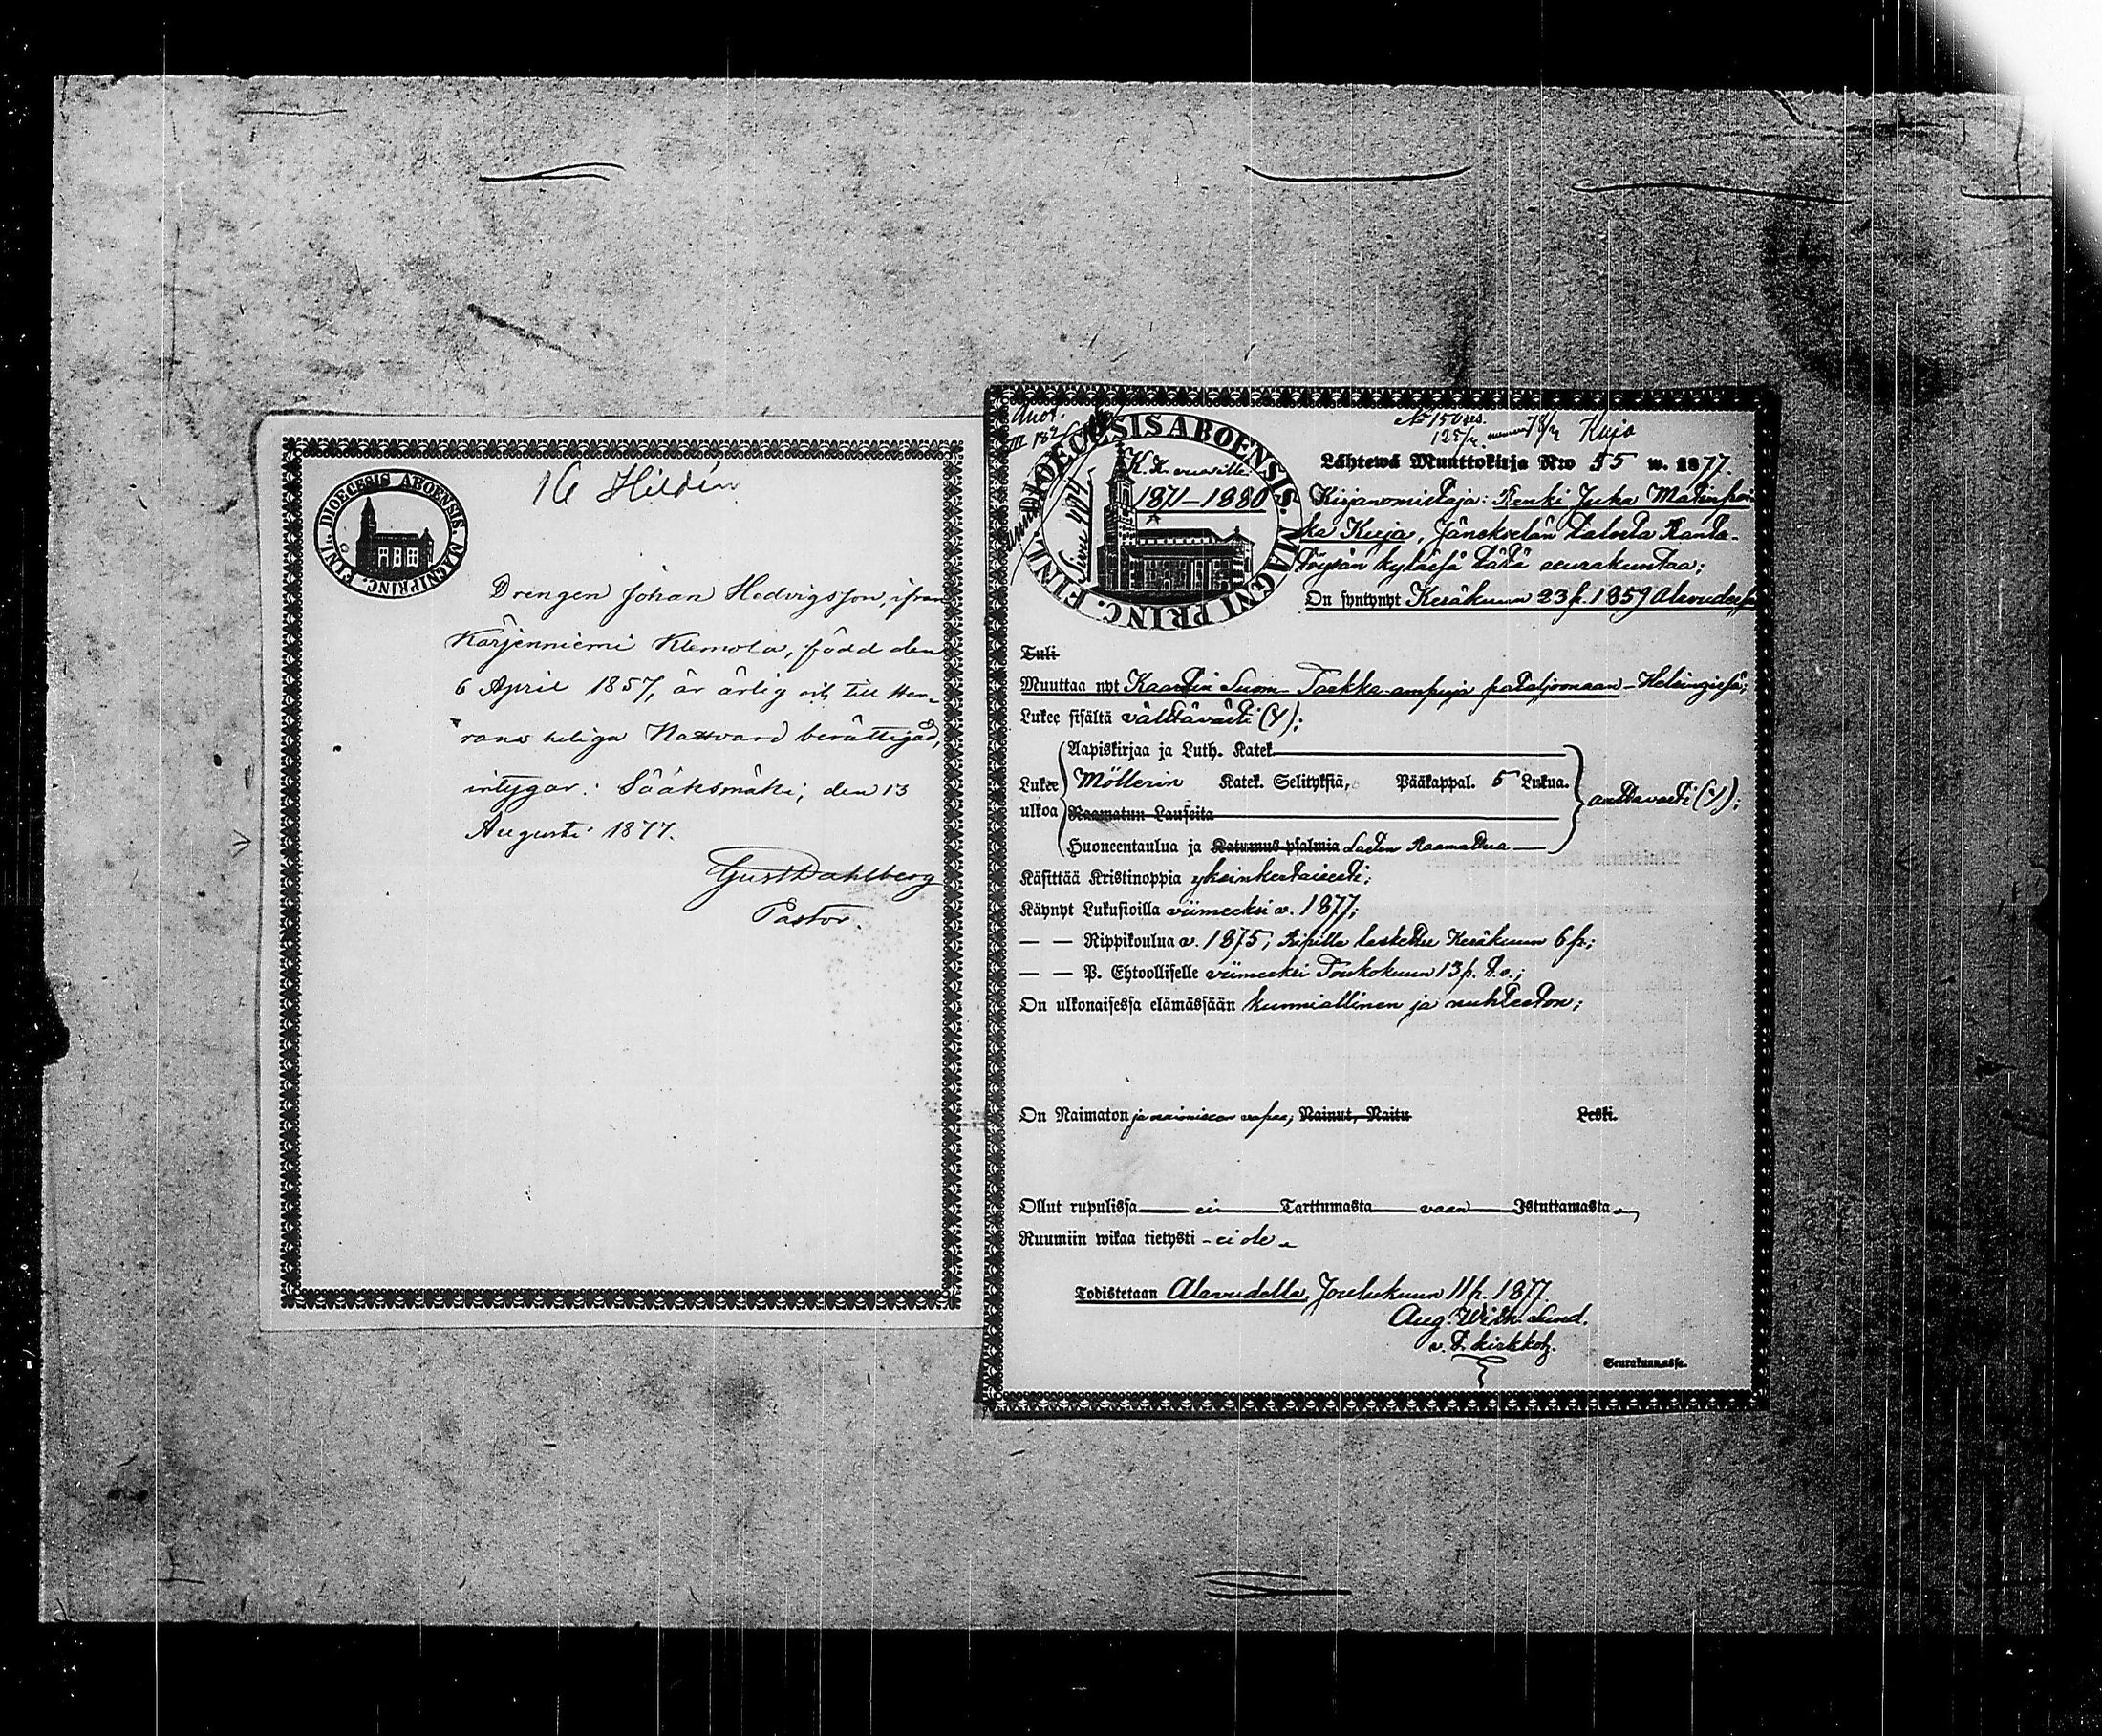 16 Hildén
FINL. DIOECESIS ABOENSIS. MAGNI PRINC.
Drengen Johan Hedvigsson, ifrån
Kärjenniemi Klemola, född den
6 April 1857, är ärlig och till Her-
rans heliga Nattvard berättigad,
intygar: Sääksmäki, den 13
Augusti 1877.
Gust Dahlberg
Pastor.
FINL. DIOECESIS ABOENSIS. MAGNI PRINC.
K.K. vuosille
1871–1880
Kuja
Lähtewä Muuttokirja N:o 55 w. 1877.
Kirjanomistaja: Renki Juha Matinpoi-
ka Kuja, Jänekselän talosta Ranta-
Töysän kylässä tätä seurakuntaa;
On syntynyt Kesäkuun 23 p. 1859 Alavudessa
Tuli
Muuttaa nyt Kaartin Suom. Tarkka-ampuja pataljoonaan – Helsingissä;
Lukee sisältä välttävästi (y);
Aapiskirjaa ja Luth. Katek.
Lukee Möllerin Katek. Selityksiä, Pääkappal. 5 Lukua.
ulkoa Raamatun Lauseita
auttavasti (y);
Huoneentaulua ja Katumus-psalmia Lasten Raamattua
Käsittää Kristinoppia yksinkertaisesti;
Käynyt Lukusioilla viimeeksi v. 1877;
— — Rippikoulua v. 1875; Ripille laskettu Kesäkuun 6 p.;
— — P. Ehtoolliselle viimeksi Toukokuun 13 p. t.v.;
On ulkonaisessa elämässään kunniallinen ja nuhteeton;
On Naimaton ja naimiseen vapaa; Nainut, Naitu Leski.
Ollut rupulissa ei Tarttumasta vaan Istuttamasta
Ruumiin wikaa tietysti – ei ole
Todistetaan Alavudella, Joulukuun 11 p. 1877.
Aug. Wilh. Lund.
v.t. kirkkoh.
Seurakunnassa.